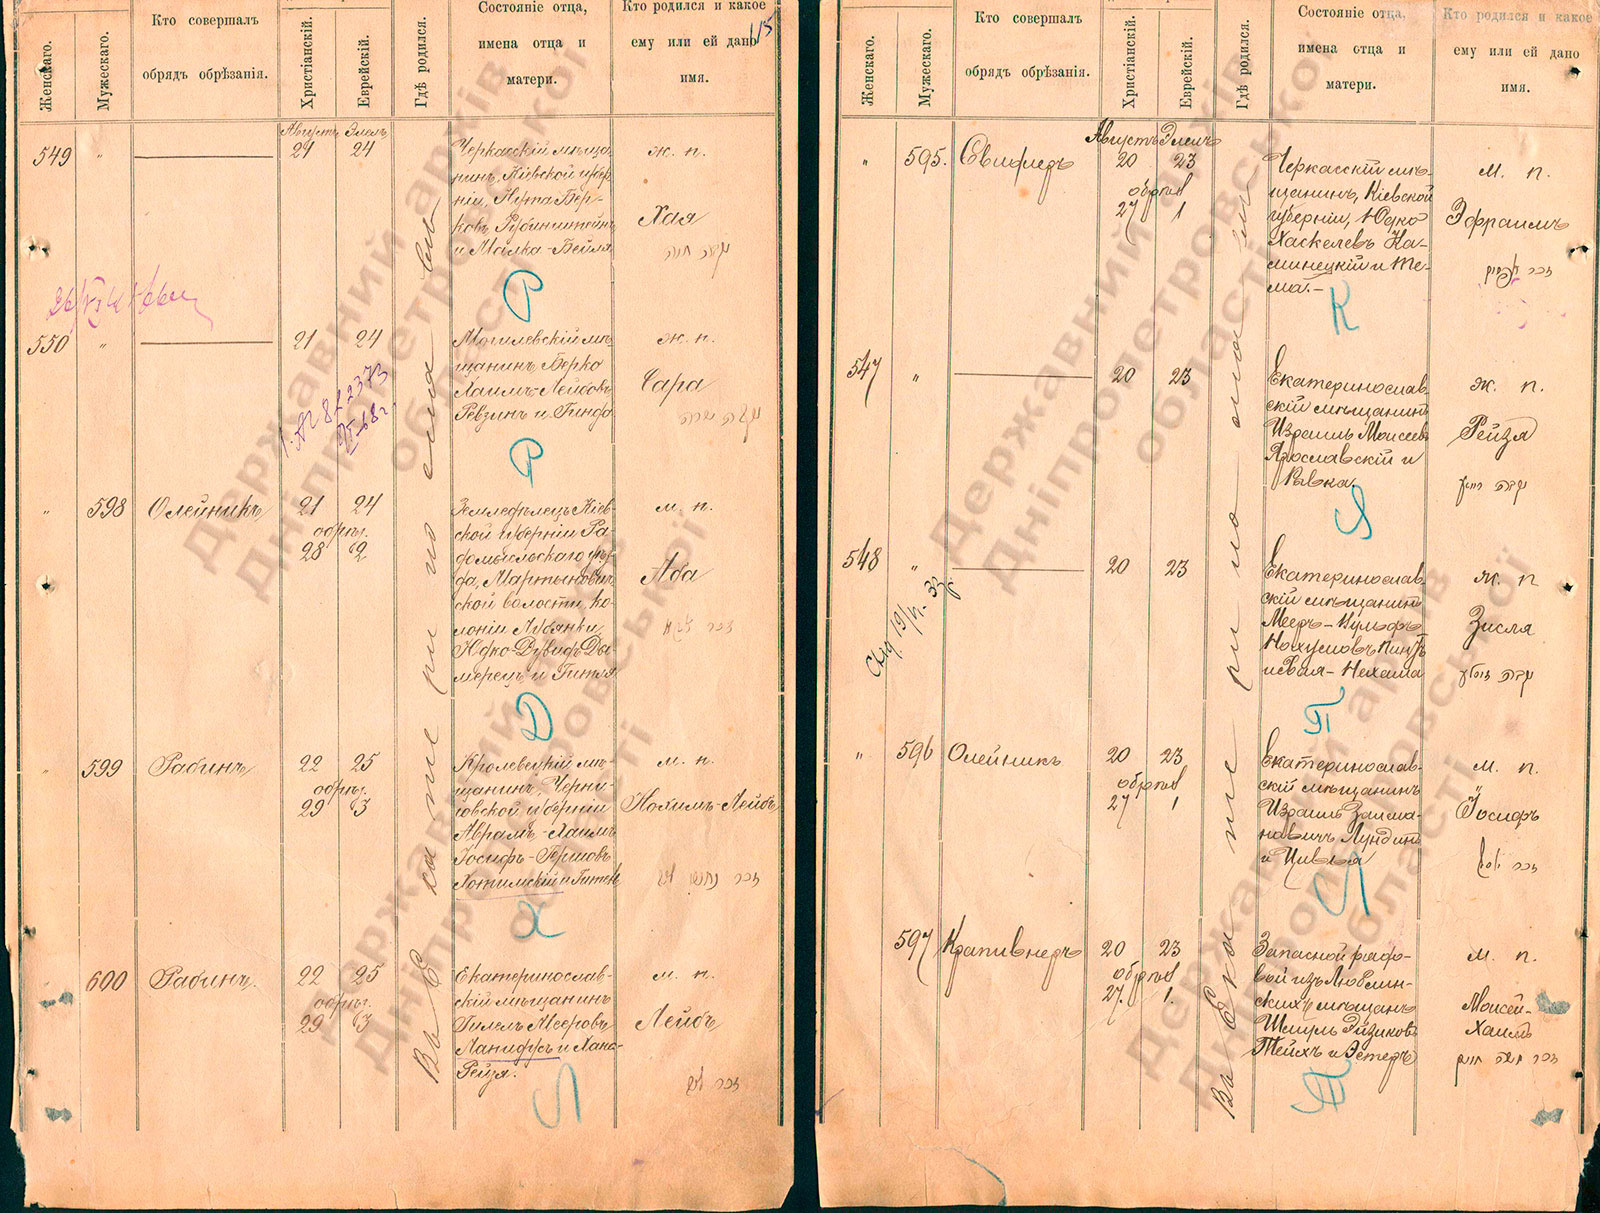 115
Женскаго.
Мужескаго.
Кто совершалъ
обрядъ обрѣзанія.
Христіанскій.
Еврейскій.
Гдѣ родился.
Состояніе отца,
имена отца и
матери.
Кто родился и какое
ему или ей дано
имя.
Августъ Элелъ
549 " 21 24
Черкасскій мѣща-
нинъ, Кіевской губер-
ніи, Нута Бер-
ковъ Рубинштейнъ
и Малка-Бейля
ж. п.
Хая
Р
550 " 21 24
Могилевскій мѣ-
щанинъ Берко
Хаимъ-Лейбовъ
Ревзинъ и Гинда
ж. п.
Сара
Р
" 598 Олейникъ 21 24
обрѣз.
28 2
Земледѣлецъ Кіев-
ской губерніи Ра-
домысльскаго уѣз-
да, Мартынович-
ской волости, ко-
лоніи Лубянки
Юдко-Дувидъ Ды-
мерецъ и Гитля
м. п.
Аба
Д
" 599 Рабинъ 22 25
обрѣз.
29 3
Кролевецкій мѣ-
щанинъ, Черни-
говской губерніи
Аврамъ-Хаимъ
Іосифъ-Гершовъ
Хотимскій и Гитель
м. п.
Нохимъ-Лейбъ
זכר נחום ליב
Х
600 Рабинъ. 22 25
обрѣз.
29 3
Екатеринослав-
скій мѣщанинъ
Гилель Мееровъ
Ланцфусъ и Хана-
Рейзя.
м. п.
Лейбъ
זכר ליב
Л
Въ Екатеринославѣ
Женскаго.
Мужескаго.
Кто совершалъ
обрядъ обрѣзанія.
Христіанскій.
Еврейскій.
Гдѣ родился.
Состояніе отца,
имена отца и
матери.
Кто родился и какое
ему или ей дано
имя.
Августъ Элелъ
" 595. 20 23
обрѣзанъ
27 1
Черкасскій мѣ-
щанинъ, Кіевской
губерніи, Юдко
Хаскелевъ Ка-
минецкій и Те-
ма.-
м. п.
Эфраимъ
זכר אפרים
К
547 " 20 23
Екатеринослав-
скій мѣщанинъ
Израиль Моисеевъ
Ярославскій и
Ривка.
ж. п.
Рейзя
Я
548 " 20 23
Екатеринослав-
скій мѣщанинъ
Мееръ-Вульфъ
и Рейзя-Нехама
ж. п
Зисля
П
" 596 Олейникъ 20 23
обрѣзанъ
27 1
Екатеринослав-
скій мѣщанинъ
Израиль Залма-
новичъ Лундинъ
и Цивья
м. п.
Іосифъ
זכר יוסף
Л
597 Крапивнеръ 20 23
обрѣзанъ
27. 1.
Запасной рядо-
вой изъ Люблин-
скихъ мѣщанъ
Шмуль Эйзиковъ
Тейхъ и Эстеръ
м. п.
Моисей-
Хаимъ
זכר משה חיים
Т
Державний архів
Дніпропетровської
області